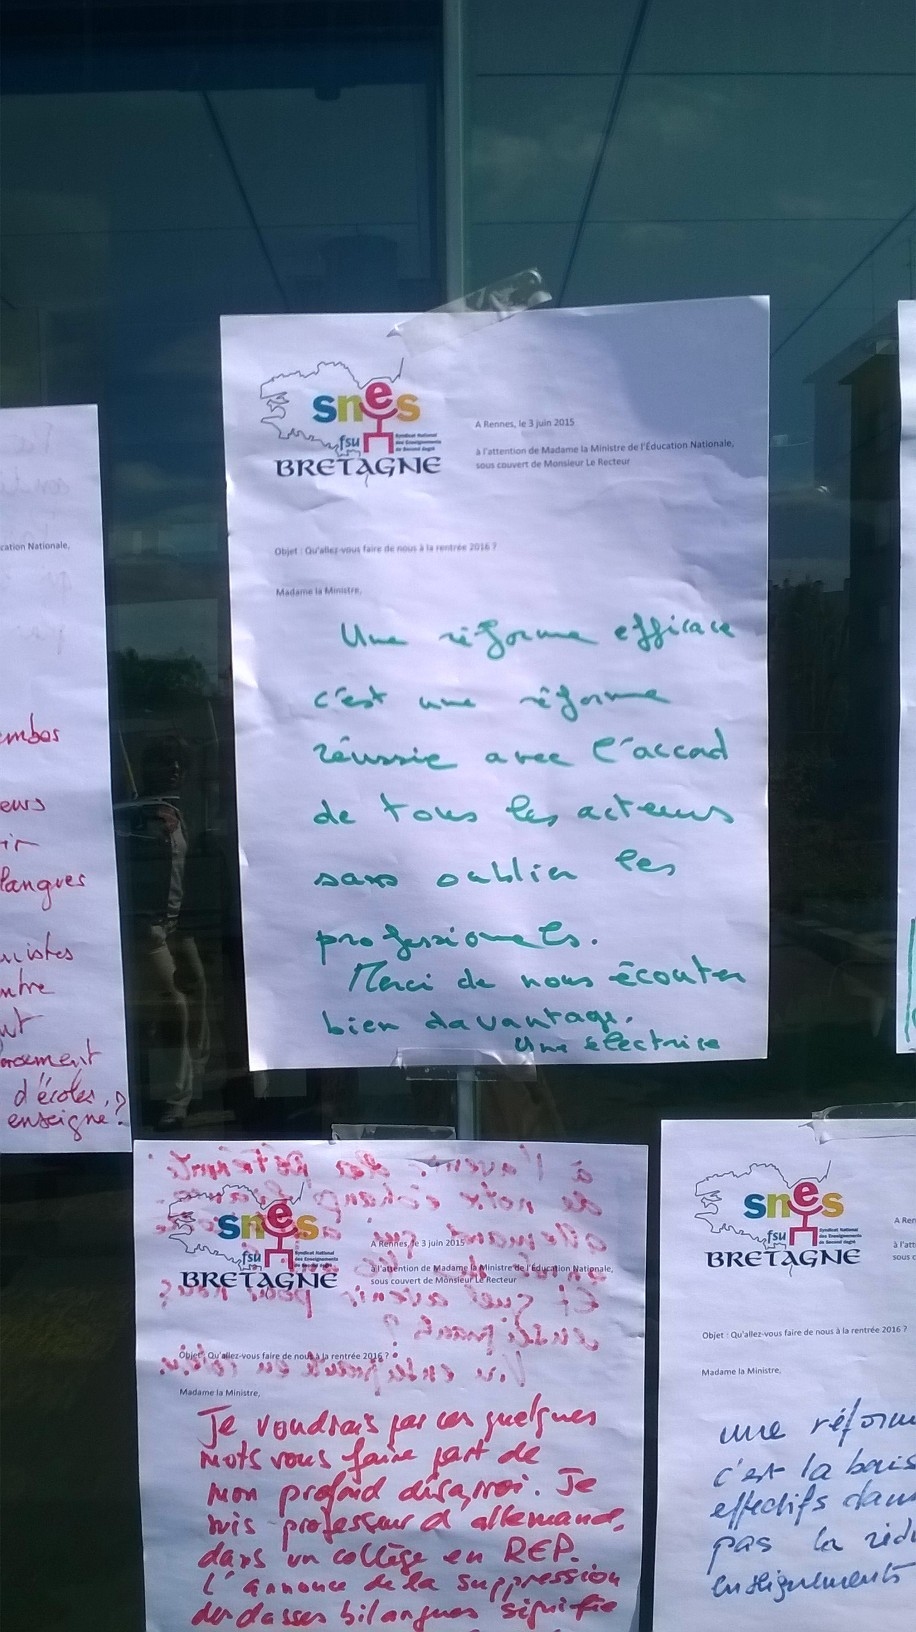 snes
fsu
Syndicat National
des Enseignements
de Second degré
BRETAGNE
A Rennes, le 3 juin 2015
à l'attention de Madame la Ministre de l'Éducation Nationale,
sous couvert de Monsieur Le Recteur
Objet : Qu'allez-vous faire de nous à la rentrée 2016 ?
Madame la Ministre,
Une réforme efficace
c'est une réforme
réussie avec l'accord
de tous les acteurs
sans oublier les
professionnels.
Merci de nous écouter
bien davantage.
Une électrice
cation Nationale,
eurs
ir
langues
ntre
d'écoles,
enseigne?
snes
fsu
Syndicat National
des Enseignements
de Second degré
BRETAGNE
A Rennes, le 3 juin 2015
à l'attention de Madame la Ministre de l'Éducation Nationale,
sous couvert de Monsieur Le Recteur
Objet : Qu'allez-vous faire de nous à la rentrée 2016 ?
Madame la Ministre,
Je voudrais par ces quelques
mots vous faire part de
mon profond désarroi. Je
suis professeur d'allemand,
dans un collège en REP.
L'annonce de la suppression
des classes bilangues signifie
snes
fsu
Syndicat National
des Enseignements
de Second degré
BRETAGNE
A Ren
à l'att
sous c
Objet : Qu'allez-vous faire de nous à la rentrée 2016 ?
Madame la Ministre,
une réform
c'est la bais
effectifs dans
pas la rédu
enseignements